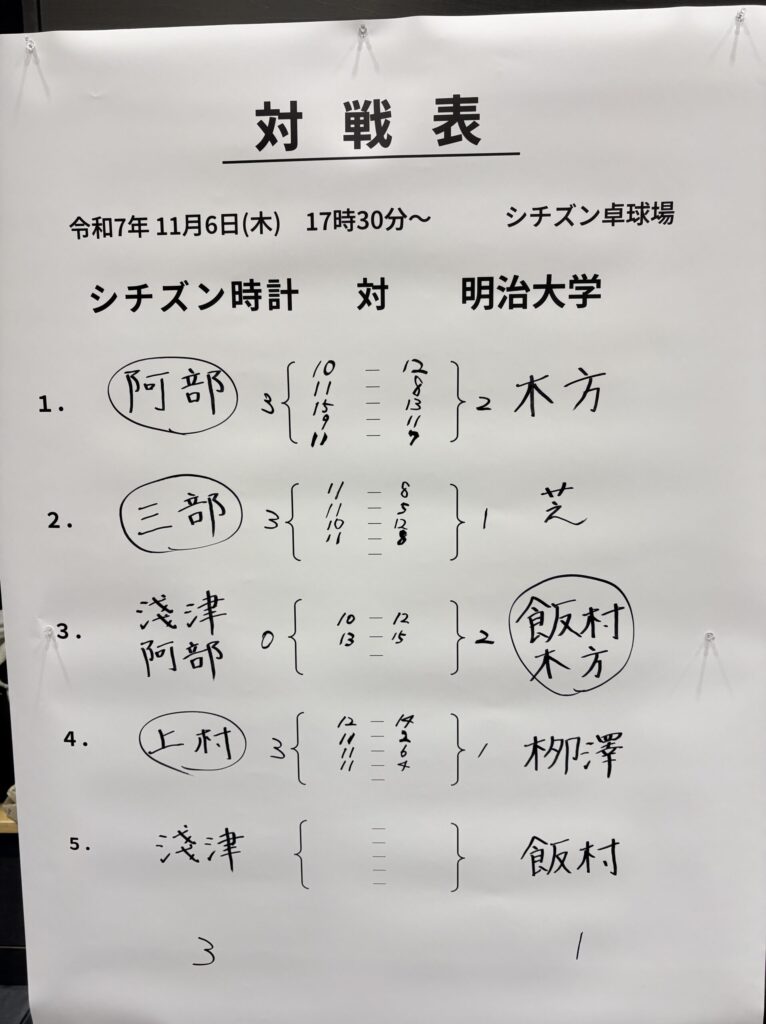 対戦表
令和7年 11月6日(木) 17時30分～ シチズン卓球場
シチズン時計 対 明治大学
1. 阿部 3 { 10 − 12 } 2 木方
11 − 8
15 − 13
9 − 11
11 − 7
2. 三部 3 { 11 − 8 } 1 芝
11 − 5
10 − 12
11 − 8
−
3. 淺津 阿部 0 { 10 − 12 } 2 飯村 木方
13 − 15
−
4. 上村 3 { 12 − 14 } 1 柳澤
11 − 2
11 − 6
11 − 4
−
5. 淺津 { − } 飯村
−
−
−
−
3 1